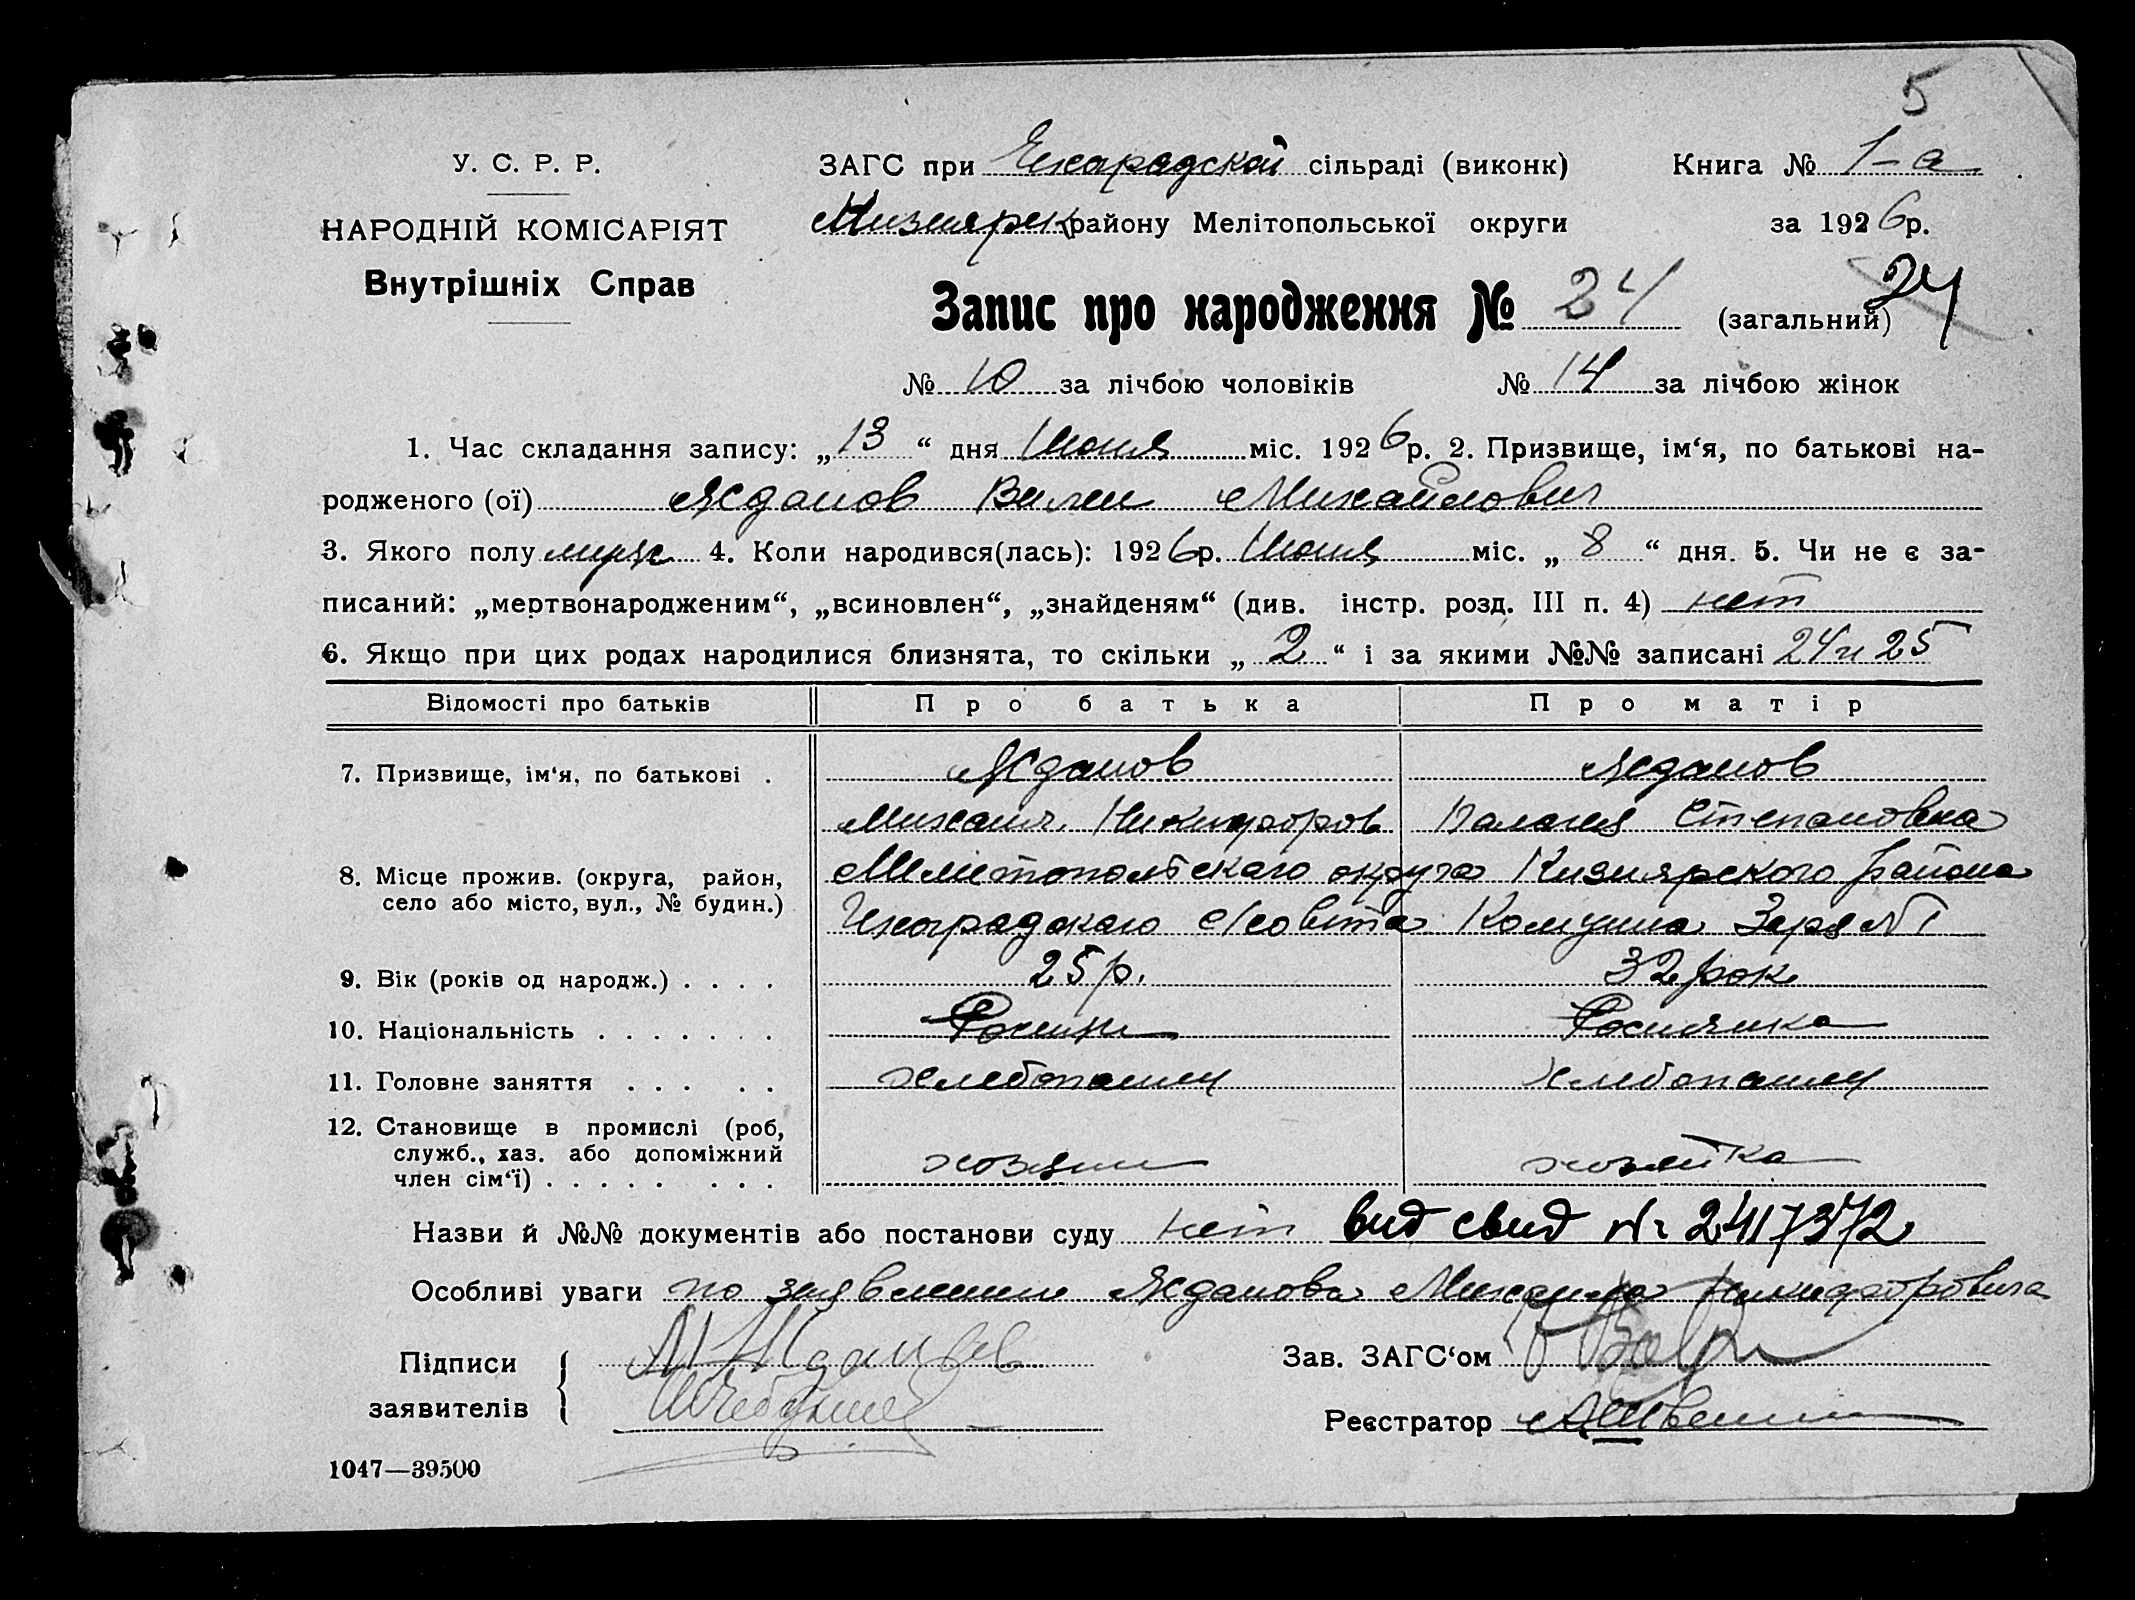 5
У. С. Р. Р.
НАРОДНІЙ КОМІСАРІЯТ
Внутрішніх Справ
ЗАГС при сільраді (виконк)
Книга № 1-а
району Мелітопольської округи
за 1926 р.
Запис про народження № 24 (загальний) 24
№ 10 за лічбою чоловіків № 14 за лічбою жінок
1. Час складання запису: „ 13 “ дня Июня міс. 1926 р. 2. Призвище, ім‘я, по батькові на-
родженого (ої) Жданов Вилен Михайлович
3. Якого полу муж 4. Коли народився(лась): 1926 р. Июня міс. „ 8 “ дня. 5. Чи не є за-
писаний: „мертвонародженим“, „всиновлен“, „знайденям“ (див. інстр. розд. III п. 4) нет
6. Якщо при цих родах народилися близнята, то скільки „ 2 “ і за якими №№ записані 24 и 25
Відомості про батьків Про батька Про матір
7. Призвище, ім‘я, по батькові . Жданов Жданов
Михаил Никифоров Степановна
8. Місце прожив. (округа, район, село або місто, вул., № будин.)
Мелитопольскаго округа Кизиярского района
Комуна Заря № 1
9. Вік (років од народж.) . . . . 25 р. 32 рок
10. Національність . . . . . . .
11. Головне заняття . . . . . хлебопашец хлебопашец
12. Становище в промислі (роб,
служб., хаз. або допоміжний
член сім‘ї) . . . . . . . . хозяин хозяйка
Назви й №№ документів або постанови суду нет вид свид № 2417372
Особливі уваги по заявлению Жданова Михаила Никифоровича
Підписи
заявителів
М Жданов
Зав. ЗАГС‘ом
Реєстратор
1047—39500